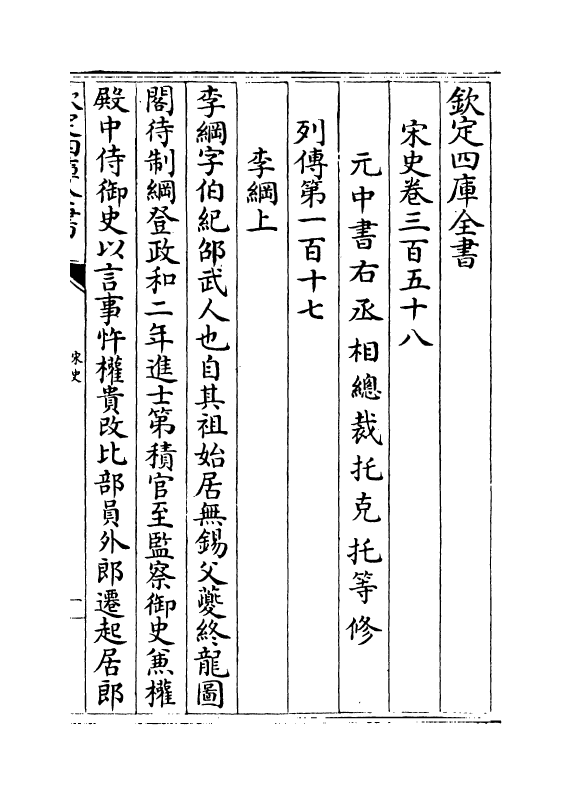 欽定四庫全書
宋史卷三百五十八
元中書右丞相總裁托克托等修
列傳第一百十七
李綱上
李綱字伯紀邵武人也自其祖始居無錫父夔終龍圖
閣待制綱登政和二年進士第積官至監察御史兼權
殿中侍御史以言事忤權貴改比部員外郎遷起居郎
欽定四庫全書
宋史
一